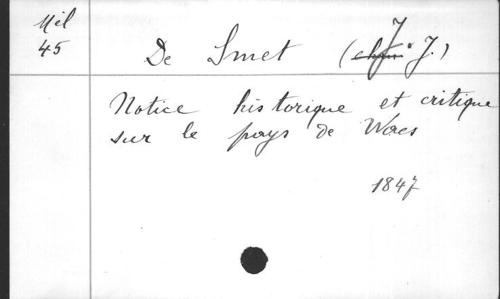 Mél
45
De Smet (J. J.)
Notice historique et critique
sur le pays de Waes
1847